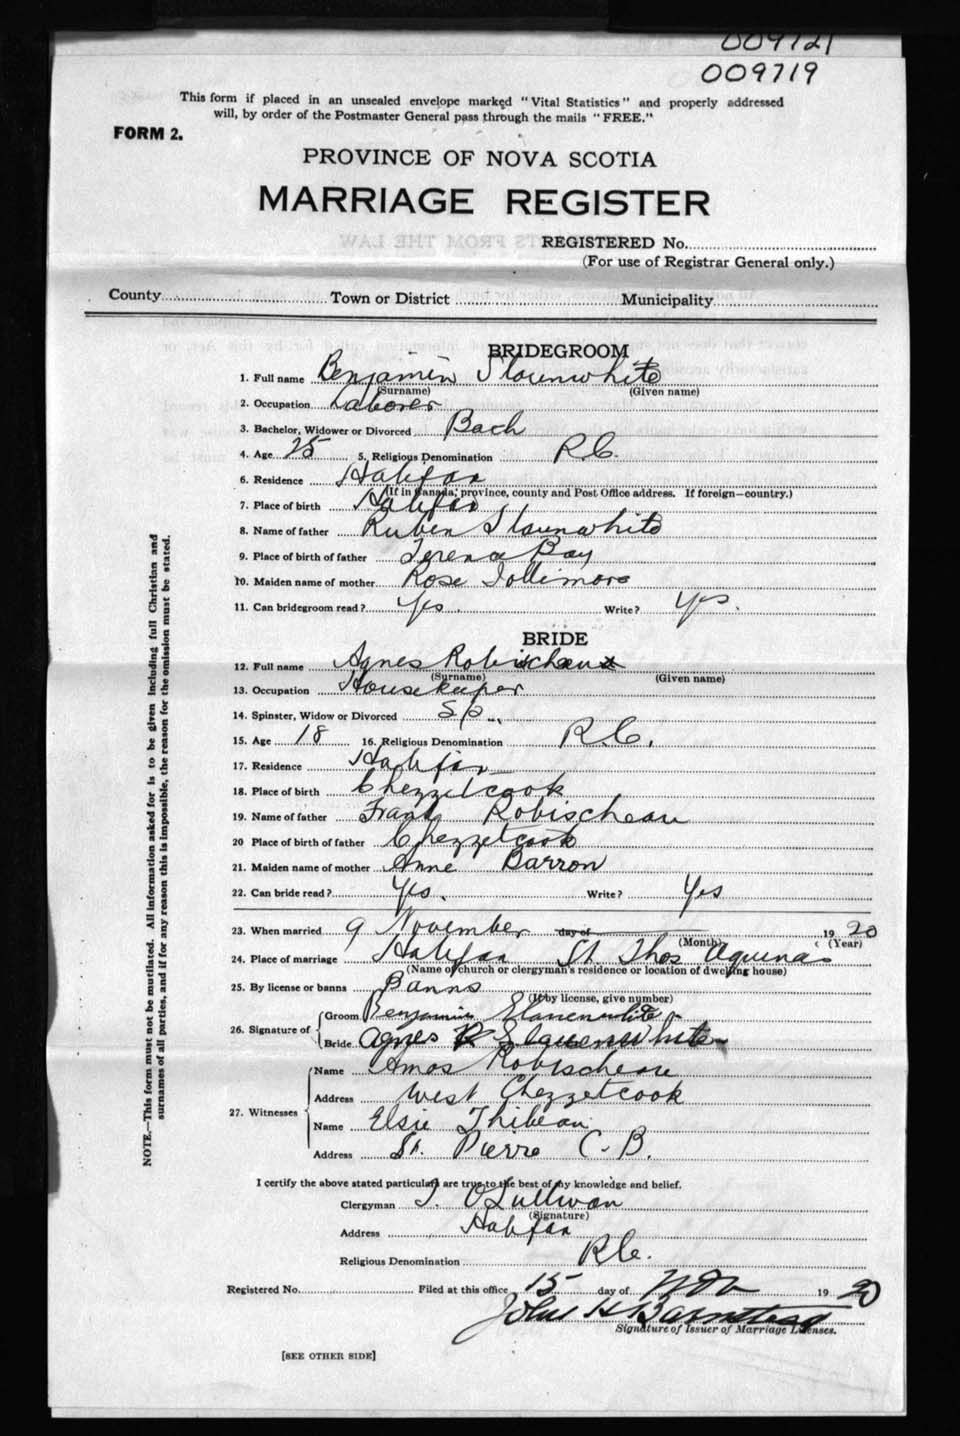 009721
009719
This form if placed in an unsealed envelope marked "Vital Statistics" and properly addressed
will, by order of the Postmaster General pass through the mails "FREE."
FORM 2.
PROVINCE OF NOVA SCOTIA
MARRIAGE REGISTER
REGISTERED No.
(For use of Registrar General only.)
County Town or District Municipality
BRIDEGROOM
1. Full name Benjamin Slaunwhite
(Surname) (Given name)
2. Occupation Laborer
3. Bachelor, Widower or Divorced Bach
4. Age 25 5. Religious Denomination R.C.
6. Residence Halifax
(If in Canada, province, county and Post Office address. If foreign—country.)
7. Place of birth Halifax
8. Name of father Ruben Slaunwhite
9. Place of birth of father Terence Bay
10. Maiden name of mother Rose Jollimore
11. Can bridegroom read? Yes. Write? Yes.
BRIDE
12. Full name Agnes Robischeau
(Surname) (Given name)
13. Occupation Housekeeper
14. Spinster, Widow or Divorced Sp.
15. Age 18 16. Religious Denomination R.C.
17. Residence Halifax
18. Place of birth Chezzetcook
19. Name of father Frank Robischeau
20 Place of birth of father Chezzetcook
21. Maiden name of mother Anne Barron
22. Can bride read? Yes. Write? Yes
23. When married 9 November day of 1920
(Month) (Year)
24. Place of marriage Halifax St. Thos Aquinas
(Name of church or clergyman's residence or location of dwelling house)
25. By license or banns Banns
(If by license, give number)
26. Signature of
Groom Benjamin Slauenwhite
Bride Agnes R Slauenwhite
27. Witnesses
Name Amos Robischeau
Address West Chezzetcook
Name Elsie Thibeau
Address St. Pierre C.B.
I certify the above stated particulars are true to the best of my knowledge and belief.
Clergyman T. O'Sullivan
(Signature)
Address Halifax
Religious Denomination R.C.
Registered No. Filed at this office 15 day of Nov 1920
John H Barnstead
Signature of Issuer of Marriage Licenses.
[SEE OTHER SIDE]
NOTE.—This form must not be mutilated. All information asked for is to be given including full Christian and
surnames of all parties, and if for any reason this is impossible, the reason for the omission must be stated.